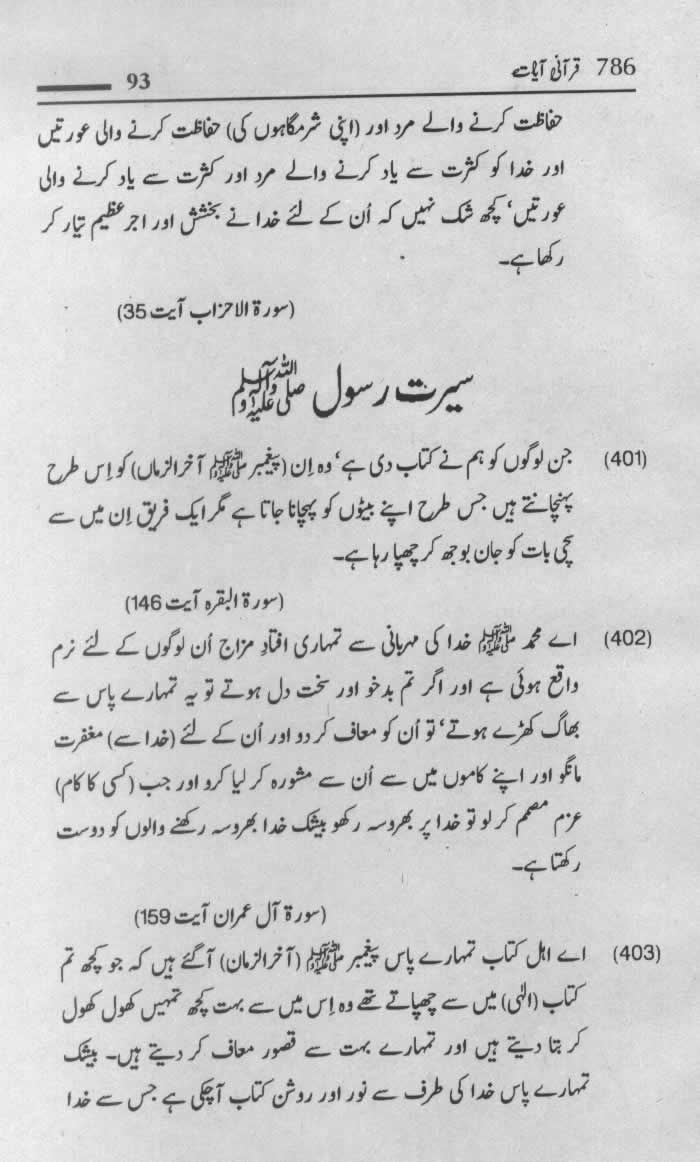 786 قرآنی آیات 93
حفاظت کرنے والے مرد اور (اپنی شرمگاہوں کی) حفاظت کرنے والی عورتیں
اور خدا کو کثرت سے یاد کرنے والے مرد اور کثرت سے یاد کرنے والی
عورتیں‘ کچھ شک نہیں کہ اُن کے لئے خدا نے بخشش اور اجر عظیم تیار کر
رکھا ہے۔
(سورۃ الاحزاب آیت 35)
سیرت رسول ﷺ
(401) جن لوگوں کو ہم نے کتاب دی ہے‘ وہ اِن (پیغمبر ﷺ آخر الزماں) کو اِس طرح
پہنچانتے ہیں جس طرح اپنے بیٹوں کو پہچانا جاتا ہے مگر ایک فریق اِن میں سے
سچی بات کو جان بوجھ کر چھپا رہا ہے۔
(سورۃ البقرہ آیت 146)
(402) اے محمد ﷺ خدا کی مہربانی سے تمہاری افتادِ مزاج اُن لوگوں کے لئے نرم
واقع ہوئی ہے اور اگر تم بدخو اور سخت دل ہوتے تو یہ تمہارے پاس سے
بھاگ کھڑے ہوتے‘ تو اُن کو معاف کر دو اور اُن کے لئے (خدا سے) مغفرت
مانگو اور اپنے کاموں میں سے اُن سے مشورہ کر لیا کرو اور جب (کسی کا کام)
عزم مصمم کر لو تو خدا پر بھروسہ رکھو بیشک خدا بھروسہ رکھنے والوں کو دوست
رکھتا ہے۔
(سورۃ آل عمران آیت 159)
(403) اے اہل کتاب تمہارے پاس پیغمبر ﷺ (آخر الزمان) آ گئے ہیں کہ جو کچھ تم
کتاب (الٰہی) میں سے چھپاتے تھے وہ اِس میں سے بہت کچھ تمہیں کھول کھول
کر بتا دیتے ہیں اور تمہارے بہت سے قصور معاف کر دیتے ہیں۔ بیشک
تمہارے پاس خدا کی طرف سے نور اور روشن کتاب آ چکی ہے جس سے خدا